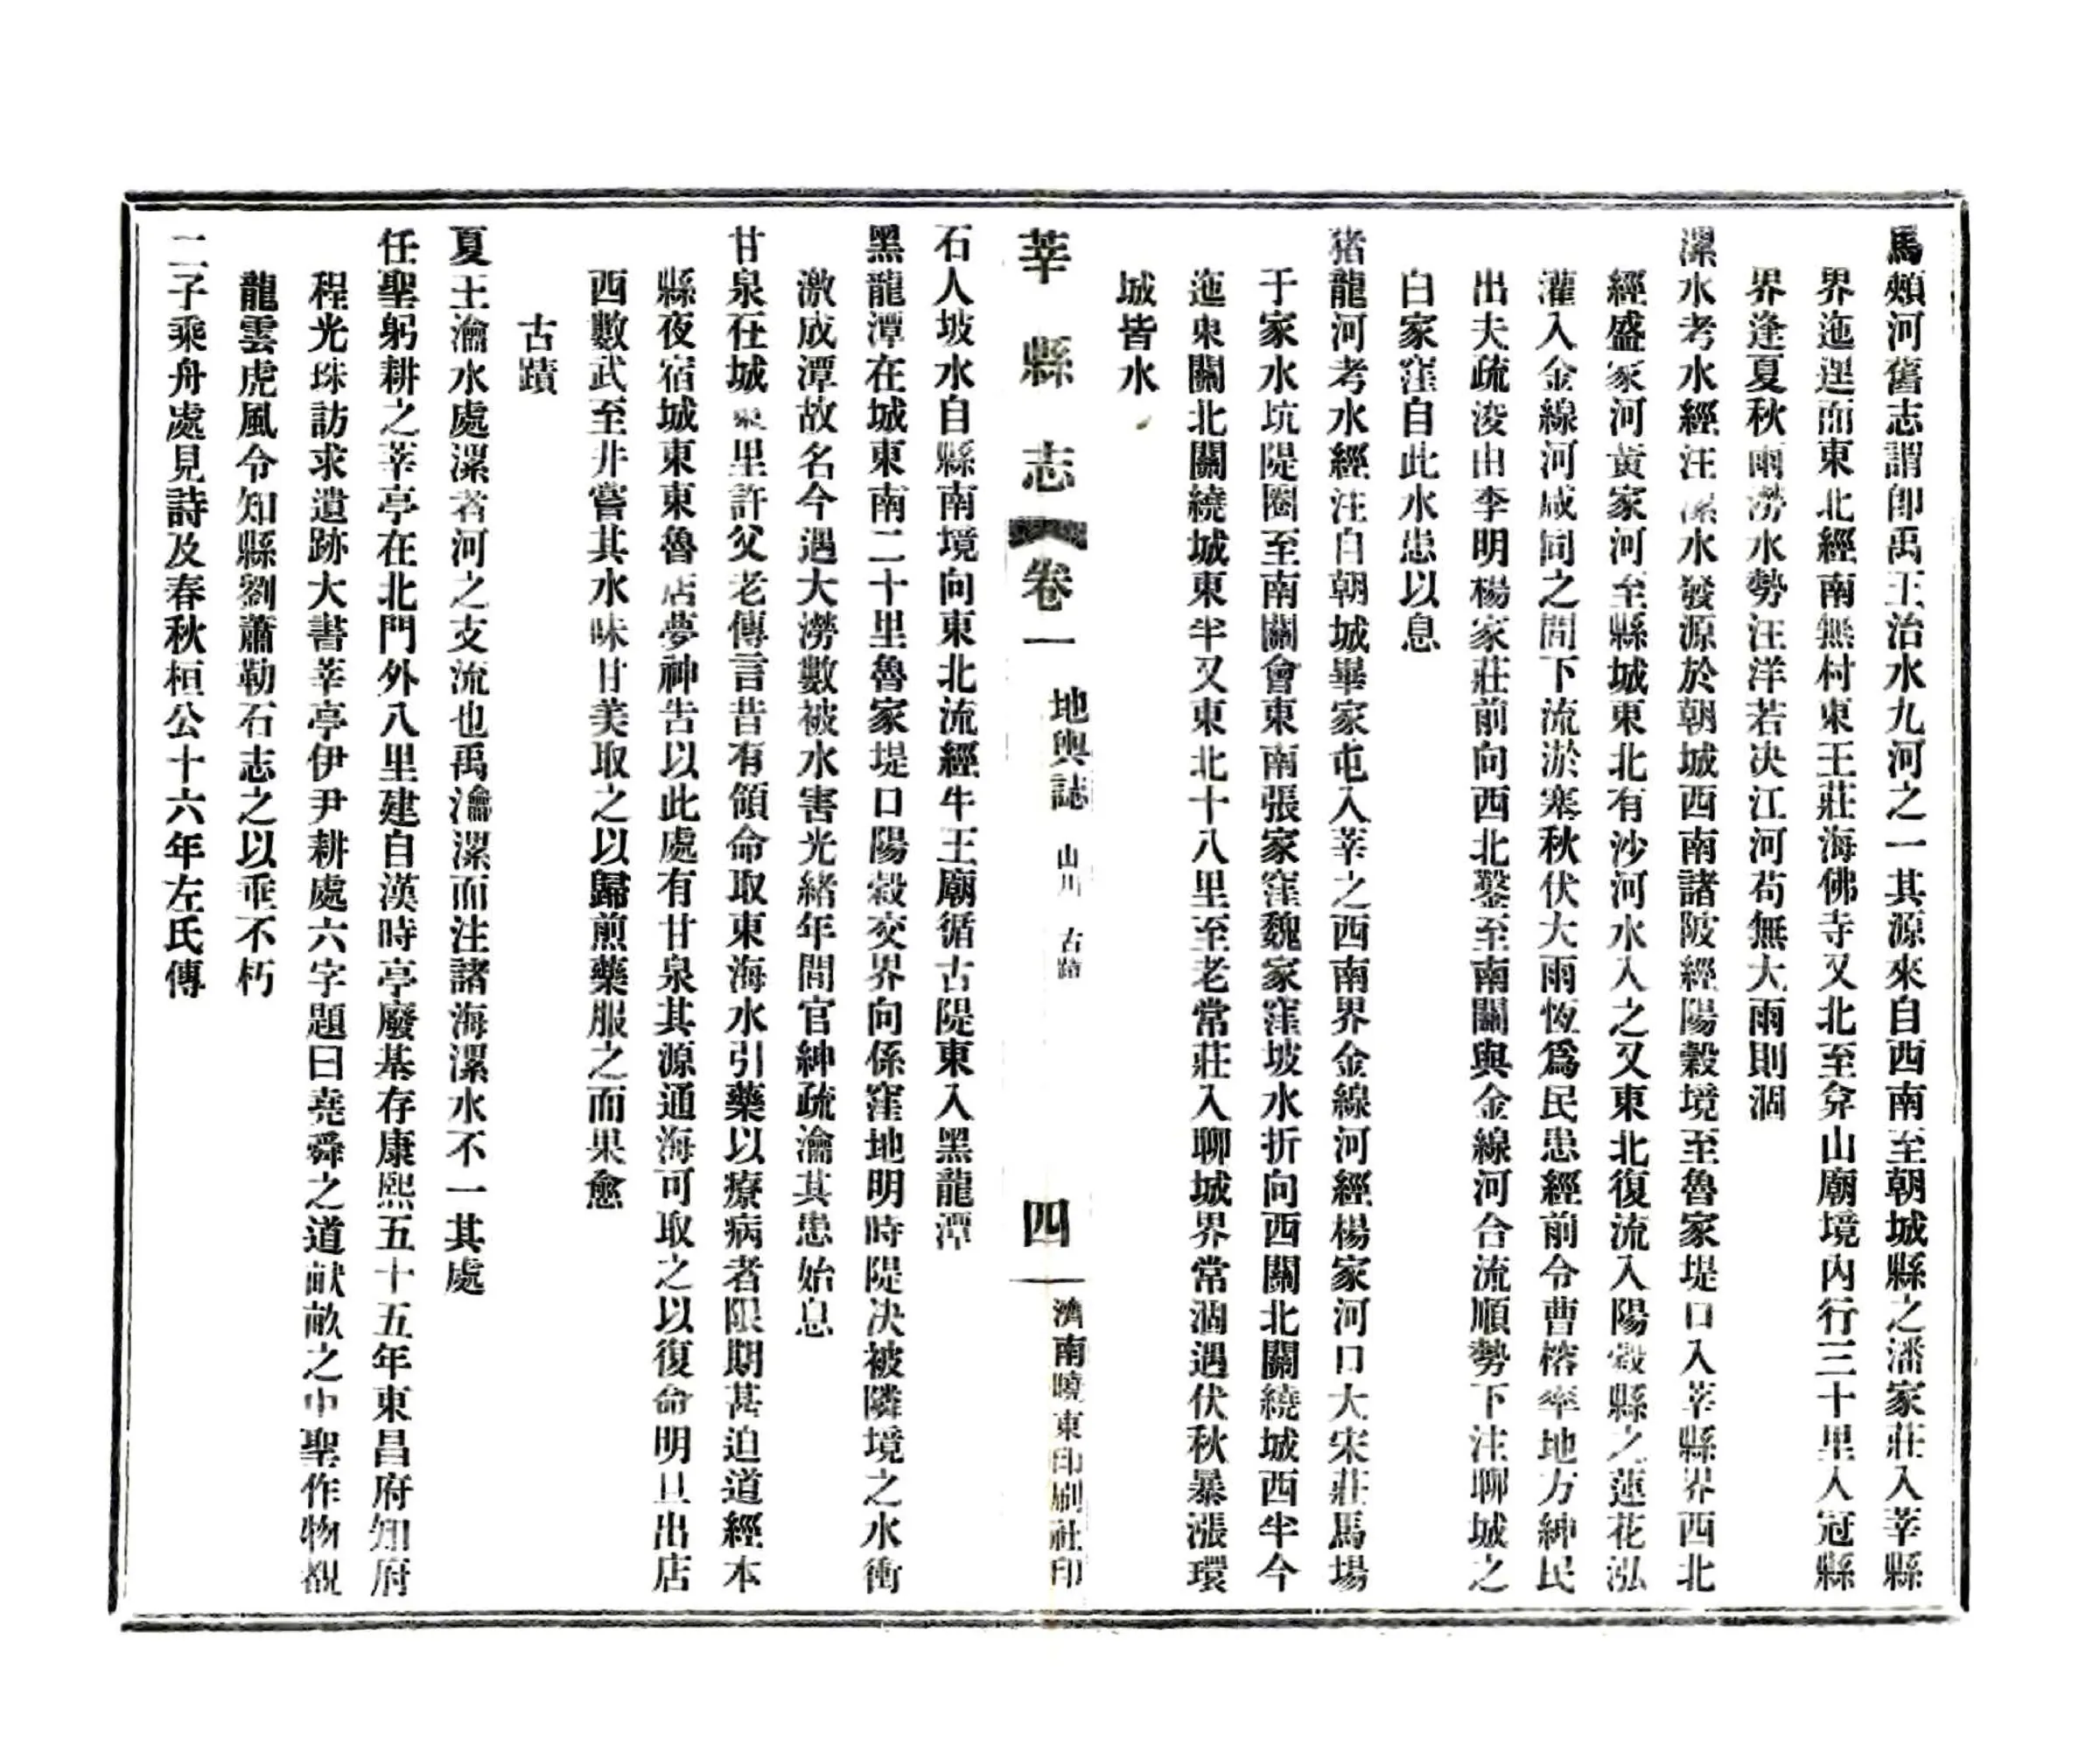 馬頰河舊志謂卽禹王治水九河之一其源來自西南至朝城縣之潘家莊入莘縣
界迤邐而東北經南無村東王莊海佛寺又北至弇山廟境內行三十里入冠縣
界逢夏秋雨澇水勢汪洋若決江河苟無大雨則涸
漯水考水經注漯水發源於朝城西南諸陂經陽穀境至魯家堤口入莘縣界西北
經盛家河黃家河至縣城東北有沙河水入之又東北復流入陽穀縣之蓮花泓
灌入金線河咸同之間下流淤塞秋伏大雨恆爲民患經前令曹榕率地方紳民
出夫疏浚由李明楊家莊前向西北鑿至南關與金線河合流順勢下注聊城之
白家窪自此水患以息
猪龍河考水經注自朝城畢家屯入莘之西南界金線河經楊家河口大宋莊馬場
于家水坑隄圈至南關會東南張家窪魏家窪坡水折向西關北關繞城西半今
迤東關北關繞城東半又東北十八里至老常莊入聊城界常涸遇伏秋暴漲環
城皆水
莘縣志 卷一 地輿誌 山川 古蹟 四 濟南曉東印刷社印
石人坡水自縣南境向東北流經牛王廟循古隄東入黑龍潭
黑龍潭在城東南二十里魯家堤口陽穀交界向係窪地明時隄决被隣境之水衝
激成潭故名今遇大澇數被水害光緒年間官紳疏瀹其患始息
甘泉在城里許父老傳言昔有領命取東海水引藥以療病者限期甚迫道經本
縣夜宿城東東魯店夢神告以此處有甘泉其源通海可取之以復命明旦出店
西數武至井嘗其水味甘美取之以歸煎藥服之而果愈
古蹟
夏王瀹水處漯者河之支流也禹瀹漯而注諸海漯水不一其處
任聖躬耕之莘亭在北門外八里建自漢時亭廢基存康熙五十五年東昌府知府
程光珠訪求遺跡大書莘亭伊尹耕處六字題曰堯舜之道畎畝之中聖作物覩
龍雲虎風令知縣劉蕭勒石志之以垂不朽
二子乘舟處見詩及春秋桓公十六年左氏傳